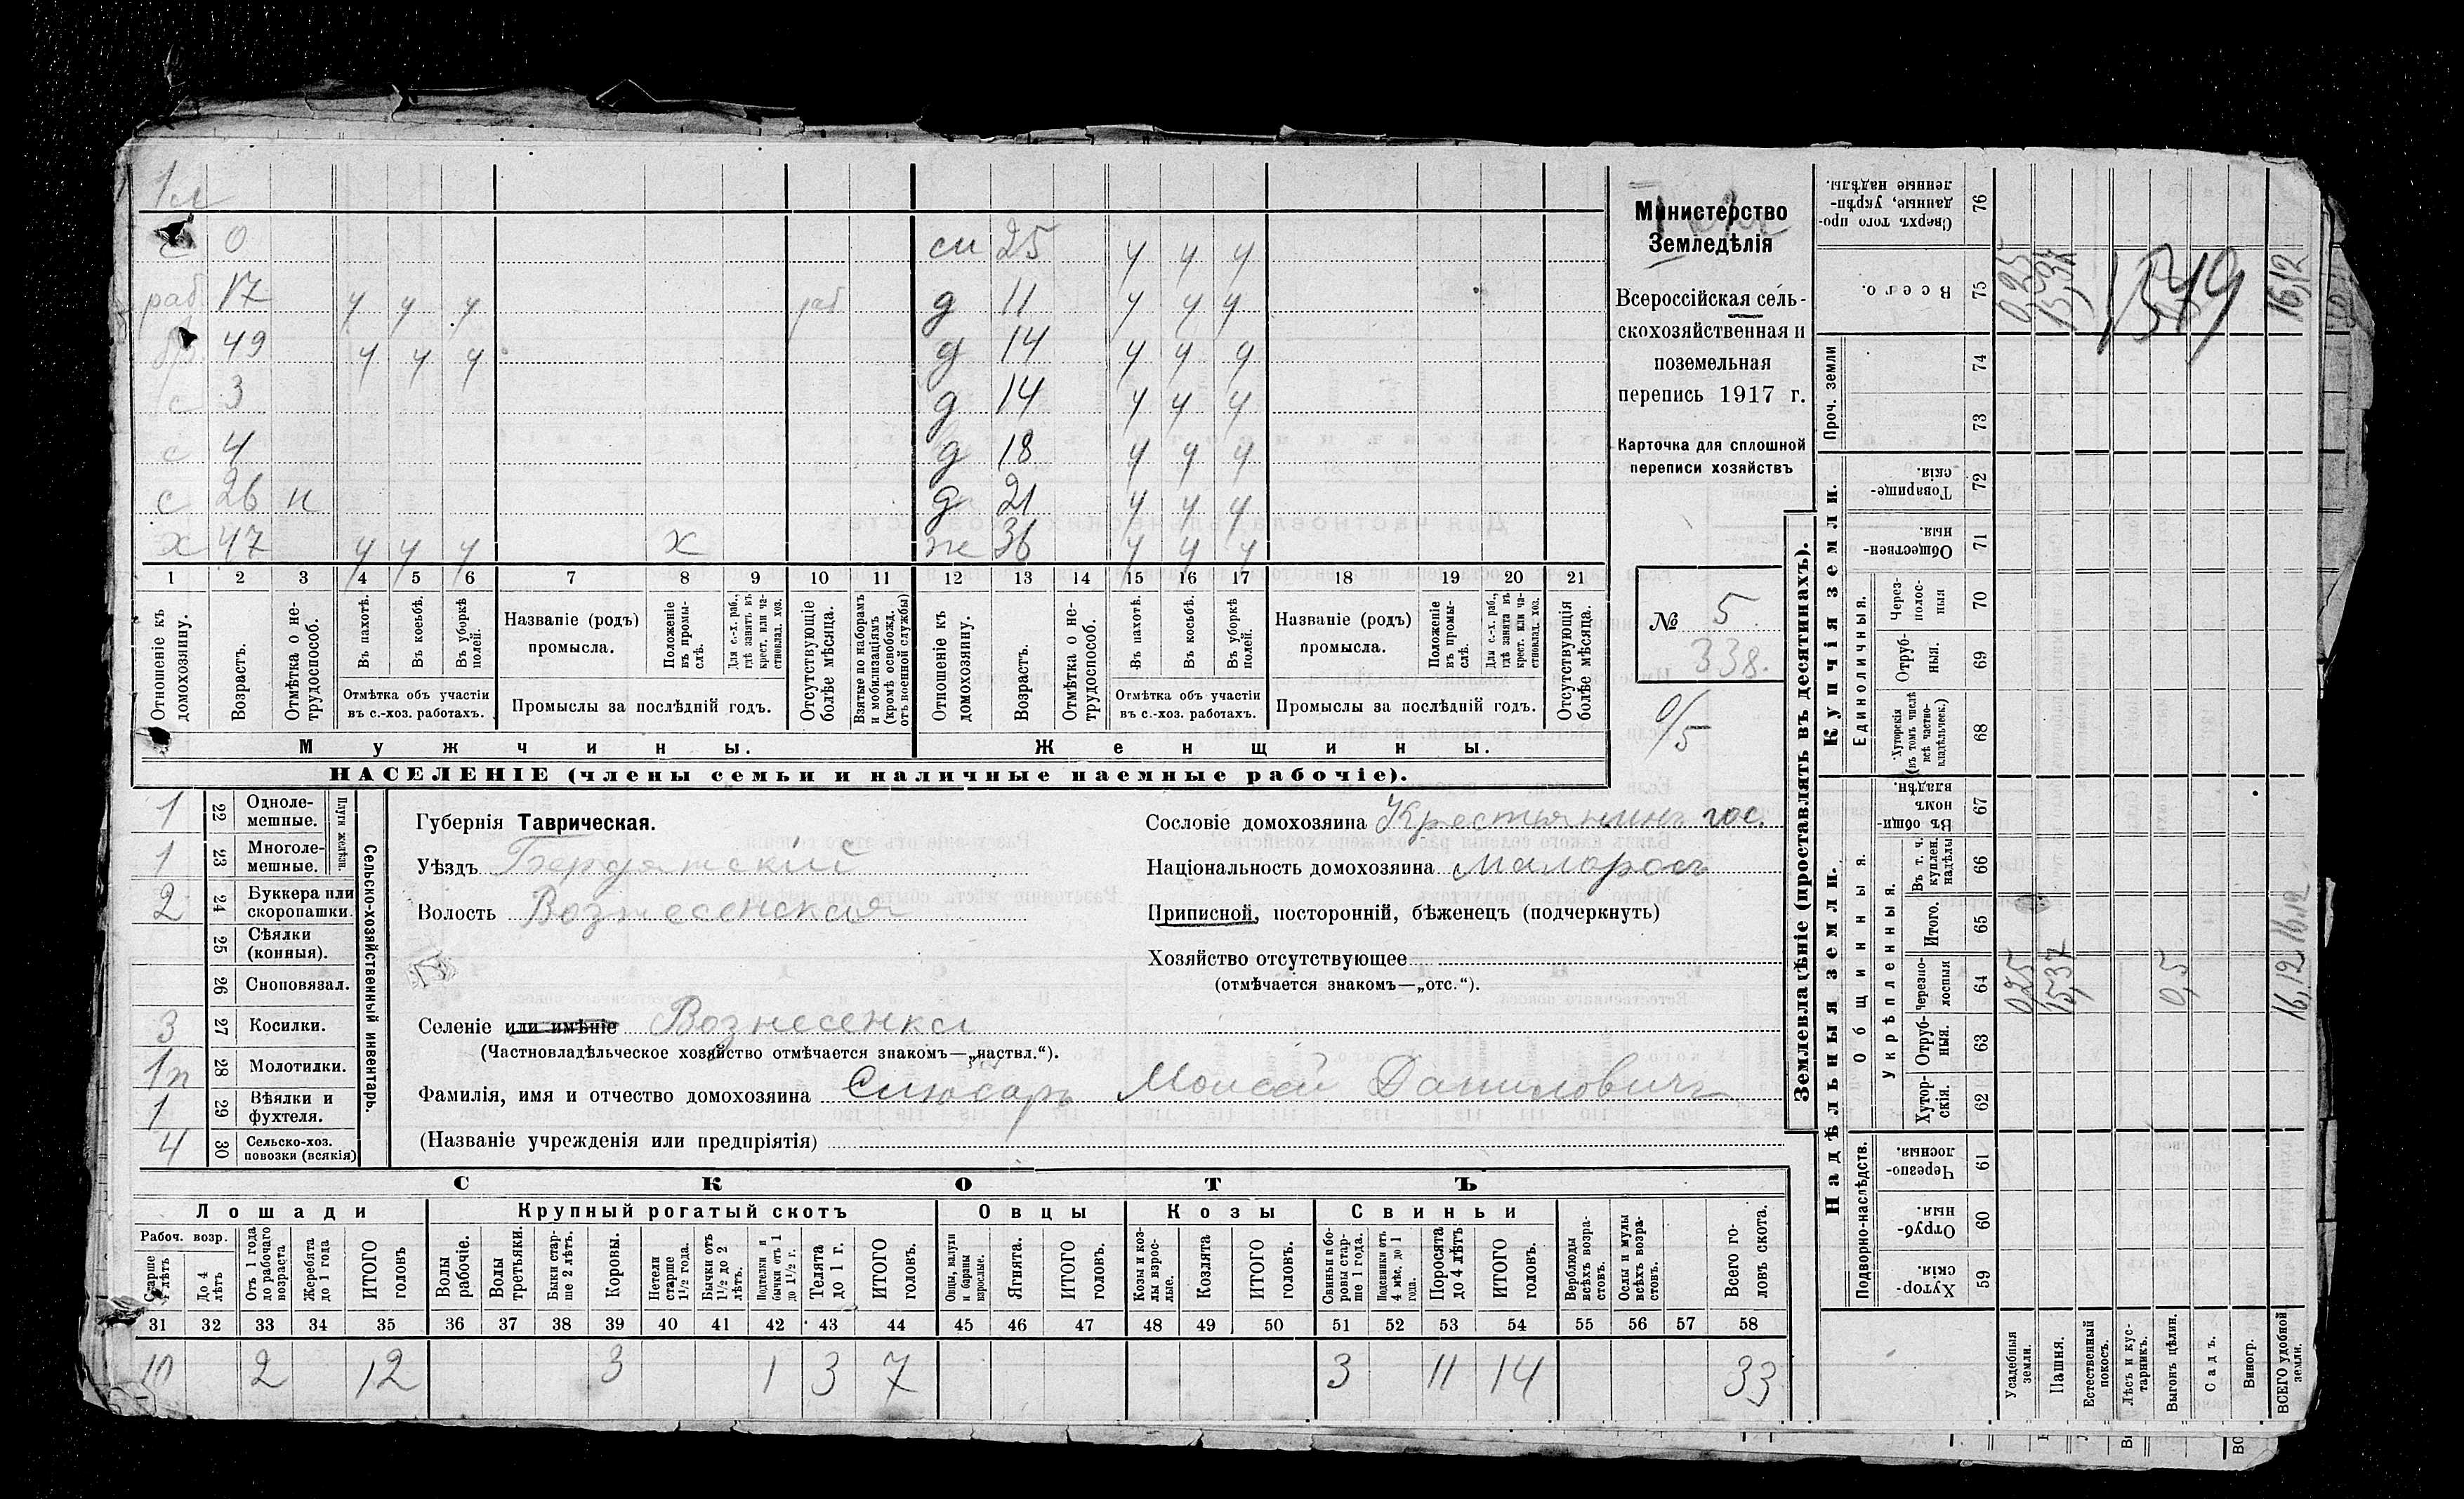 1
с 0
раб 17 у у у раб
бр 49 у у у
с 3
с 4
с 26 н
х 47 у у у х
сн 25 у у у
д 11 у у у
д 14 у у у
д 14 у у у
д 18 у у у
д 21 у у у
ж 36 у у у
1 2 3 4 5 6 7 8 9 10 11 12 13 14 15 16 17 18 19 20 21
Отношеніе къ домохозяину.
Возрастъ.
Отмѣтка о нетрудоспособ.
Въ пахотѣ.
Въ косьбѣ.
Въ уборкѣ полей.
Отмѣтка объ участіи въ с.-хоз. работахъ.
Названіе (родъ) промысла.
Положеніе въ промыслѣ.
Для с.-х. раб., гдѣ занятъ въ крест. или частновлад. хоз.
Промыслы за послѣдній годъ.
Отсутствующіе болѣе мѣсяца.
Взятые по наборамъ и мобилизаціямъ (кромѣ освобожд. отъ военной службы)
Отношеніе къ домохозяину.
Возрастъ.
Отмѣтка о нетрудоспособ.
Въ пахотѣ.
Въ косьбѣ.
Въ уборкѣ полей.
Отмѣтка объ участіи въ с.-хоз. работахъ.
Названіе (родъ) промысла.
Положеніе въ промыслѣ.
Для с.-х. раб., гдѣ занята въ крест. или частновлад. хоз.
Промыслы за послѣдній годъ.
Отсутствующія болѣе мѣсяца.
Мужчины.
Женщины.
НАСЕЛЕНІЕ (члены семьи и наличные наемные рабочіе).
Министерство
Земледѣлія
Всероссійская сель-
скохозяйственная и
поземельная
перепись 1917 г.
Карточка для сплошной
переписи хозяйствъ
№ 5
338.
0/5
1 22 Одноле-мешные.
1 23 Многоле-мешные.
Плуги желѣзн.
2 24 Буккера или скоропашки.
25 Сѣялки (конныя).
26 Сноповязал.
3 27 Косилки.
1п 28 Молотилки.
1 29 Вѣялки и фухтеля.
4 30 Сельско-хоз. повозки (всякія)
Сельско-хозяйственный инвентарь.
Губернія Таврическая.
Уѣздъ Бердянскій
Волость Вознесенская
Селеніе или имѣніе Вознесенка
(Частновладѣльческое хозяйство отмѣчается знакомъ—„частвл.“).
Фамилія, имя и отчество домохозяина Слюсарь Моисей Даниловичъ
(Названіе учрежденія или предпріятія)
Сословіе домохозяина Крестьянинъ гос.
Національность домохозяина Малоросъ
Приписной, посторонній, бѣженецъ (подчеркнуть)
Хозяйство отсутствующее
(отмѣчается знакомъ—„отс.“).
СКОТЪ
Лошади
Крупный рогатый скотъ
Овцы
Козы
Свиньи
Рабоч. возр.
Старше 4 лѣтъ
До 4 лѣтъ
Отъ 1 года до рабочаго возраста
Жеребята до 1 года
ИТОГО головъ
Волы рабочіе.
Волы третьяки.
Быки старше 2 лѣтъ.
Коровы.
Нетели старше 1½ года.
Бычки отъ 1½ до 2 лѣтъ.
Подтелки и бычки отъ 1 до 1½ г.
Телята до 1 г.
ИТОГО головъ.
Овцы, валухи и бараны взрослые.
Ягнята.
ИТОГО головъ.
Козы и козлы взрослые.
Козлята
ИТОГО головъ.
Свиньи и боровы старше 1 года.
Подсвинки отъ 4 мѣс. до 1 года.
Поросята до 4 лѣтъ
ИТОГО головъ.
Верблюды всѣхъ возрастовъ.
Ослы и мулы всѣхъ возрастовъ.
Всего головъ скота.
31 32 33 34 35 36 37 38 39 40 41 42 43 44 45 46 47 48 49 50 51 52 53 54 55 56 57 58
10 2 12 3 1 3 7 3 11 14 33
Землевладѣніе (проставлять въ десятинахъ).
Надѣльныя земли.
Купчія земли.
Проч. земли
Подворно-наслѣдств.
Общинныя.
Укрѣпленныя.
Единоличныя.
Сверхъ того проданные, укрѣпленные надѣлы. 76
Всего. 75
74
73
Товарищескія. 72
Общественныя. 71
Черезполосныя 70
Отрубныя. 69
Хуторскія (въ томъ числѣ всѣ частновладѣльческ.) 68
Въ общинномъ владѣн. 67
Въ т. ч. куплен. надѣлы 66
Итого. 65
Черезполосныя 64
Отрубныя. 63
Хуторскія. 62
Черезполосныя. 61
Отрубныя. 60
Хуторскія. 59
Усадебныя земли.
Пашня.
Естественный покосъ.
Лѣсъ и кустарникъ.
Выгонъ цѣлин.
Садъ.
Виногр.
ВСЕГО удобной земли.
0,25 15,37 16,12
0,25 15,37 0,5 16,12 16,12